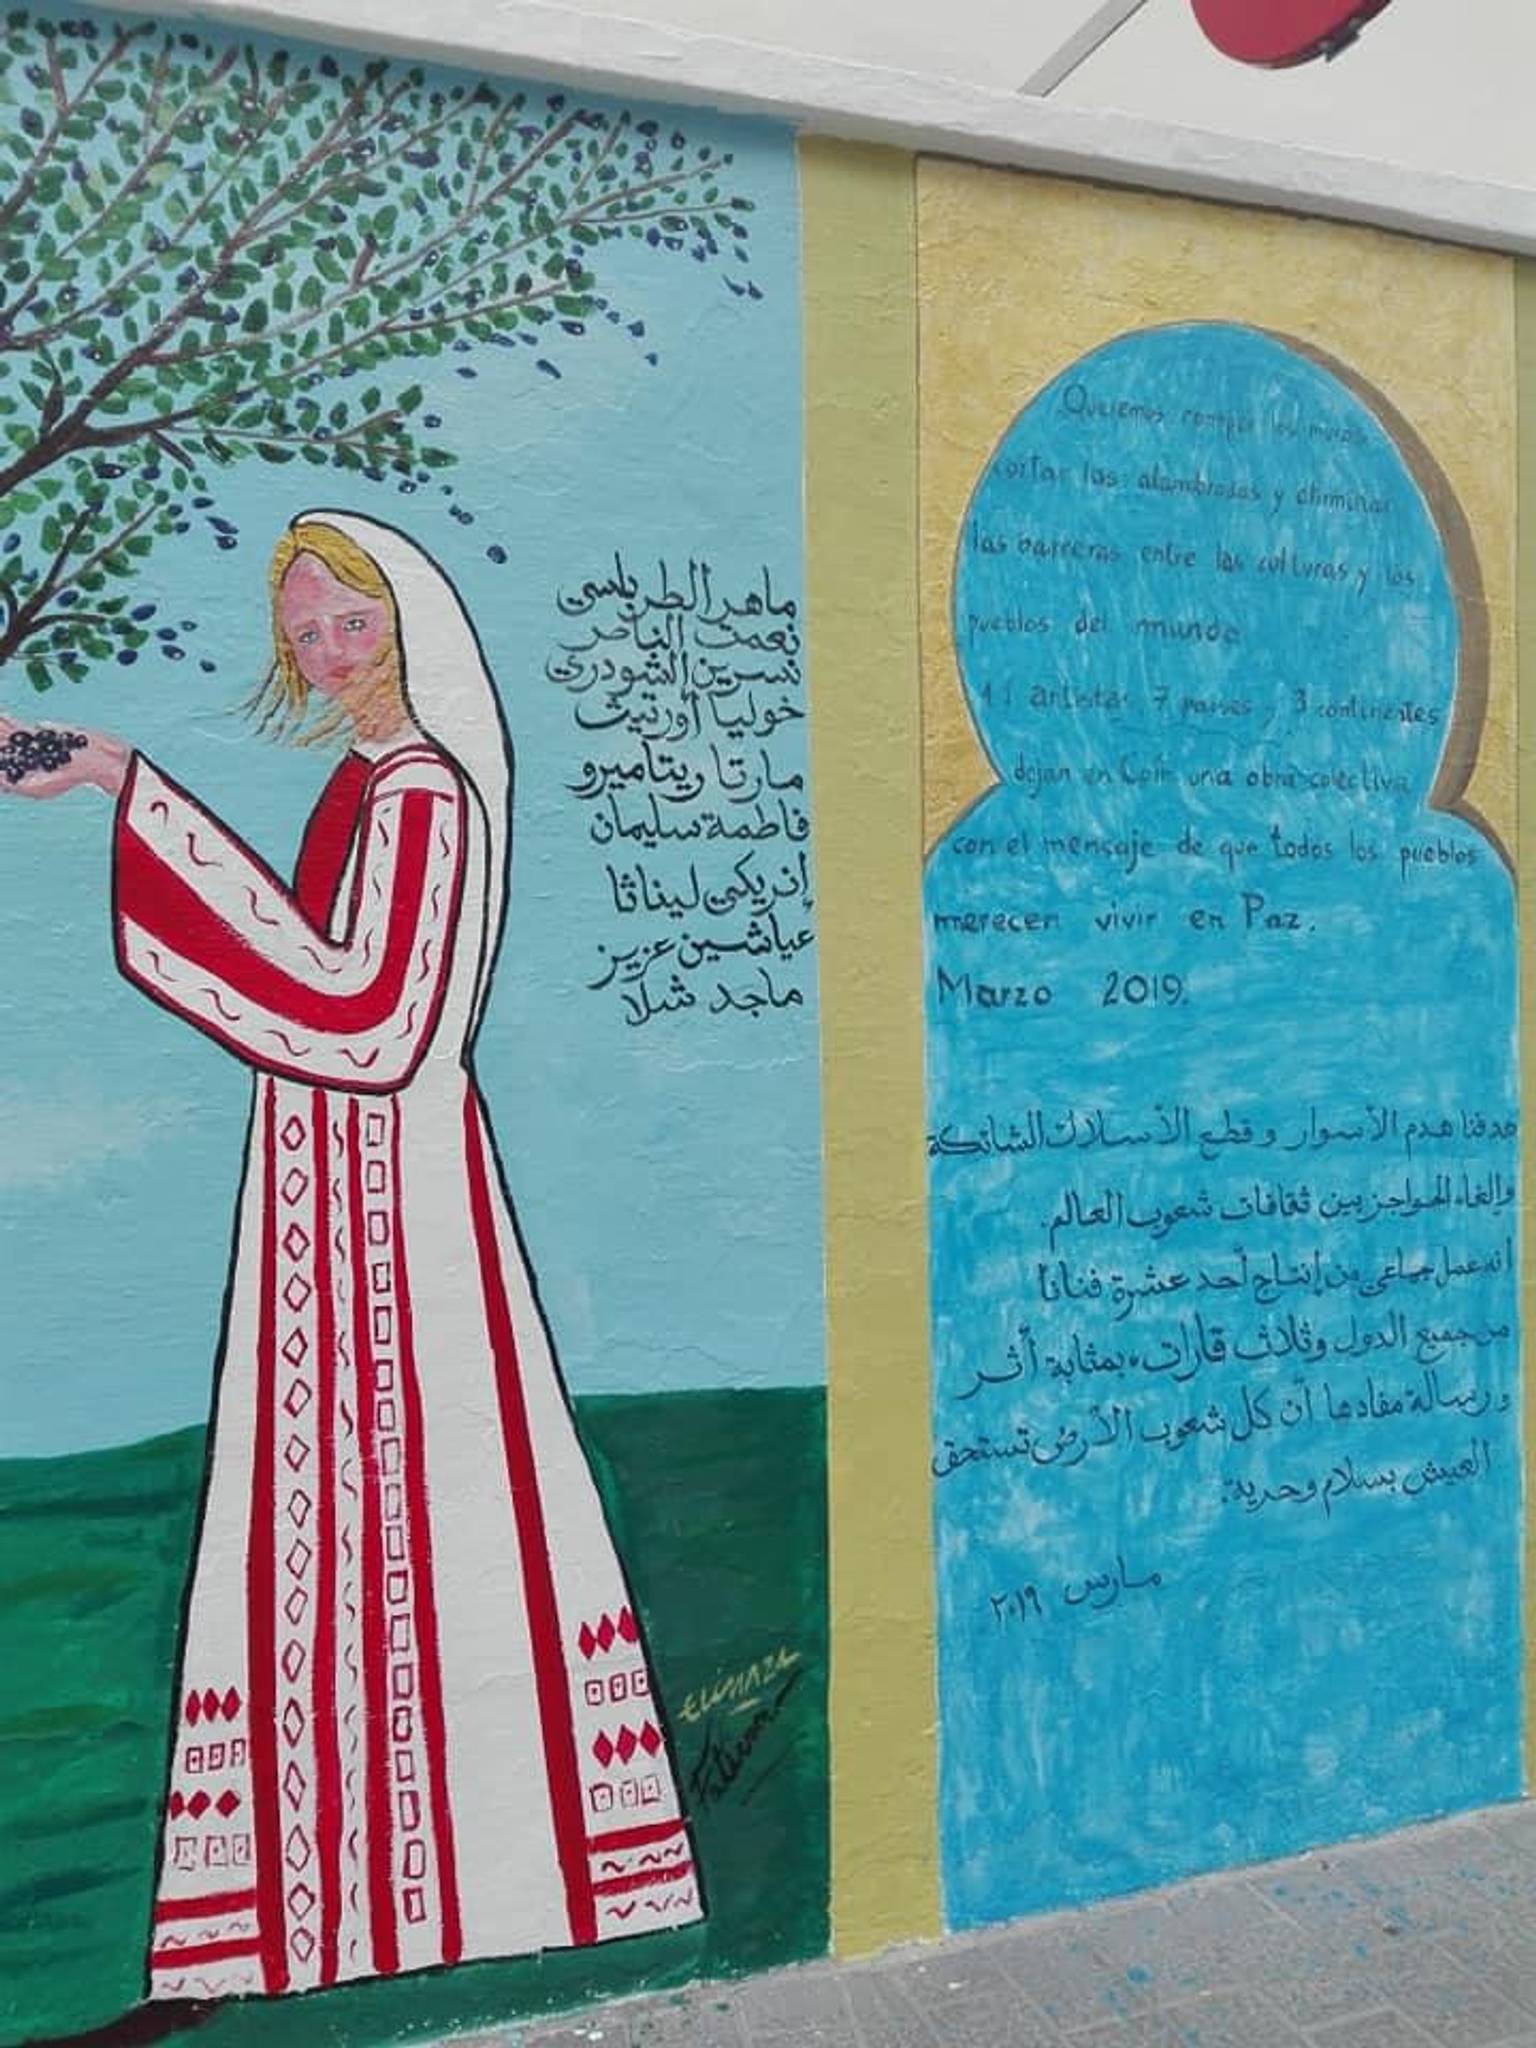 ماهر الطرباسي
نعمت الناصر
نسرين الشودري
خوليا أورنيث
مارتا ريتاميرو
فاطمة سليمان
إنريكي ليناثا
عياشين عزيز
ماجد شلا
ELINAZA
Fatema
Queremos romper los muros,
cortar las alambradas y eliminar
las barreras entre las culturas y los
pueblos del mundo
11 artistas 7 paises y 3 continentes
dejan en Coín una obra colectiva
con el mensaje de que todos los pueblos
merecen vivir en Paz.
Marzo 2019.
هدفنا هدم الأسوار و قطع الأسلاك الشائكة
وإلغاء الحواجز بين ثقافات شعوب العالم.
انه عمل جماعي من إنتاج أحد عشرة فنانا
من جميع الدول وثلاث قارات، بمثابة أثر
ورسالة مفادها أن كل شعوب الأرض تستحق
العيش بسلام وحرية.
مارس ٢٠١٩